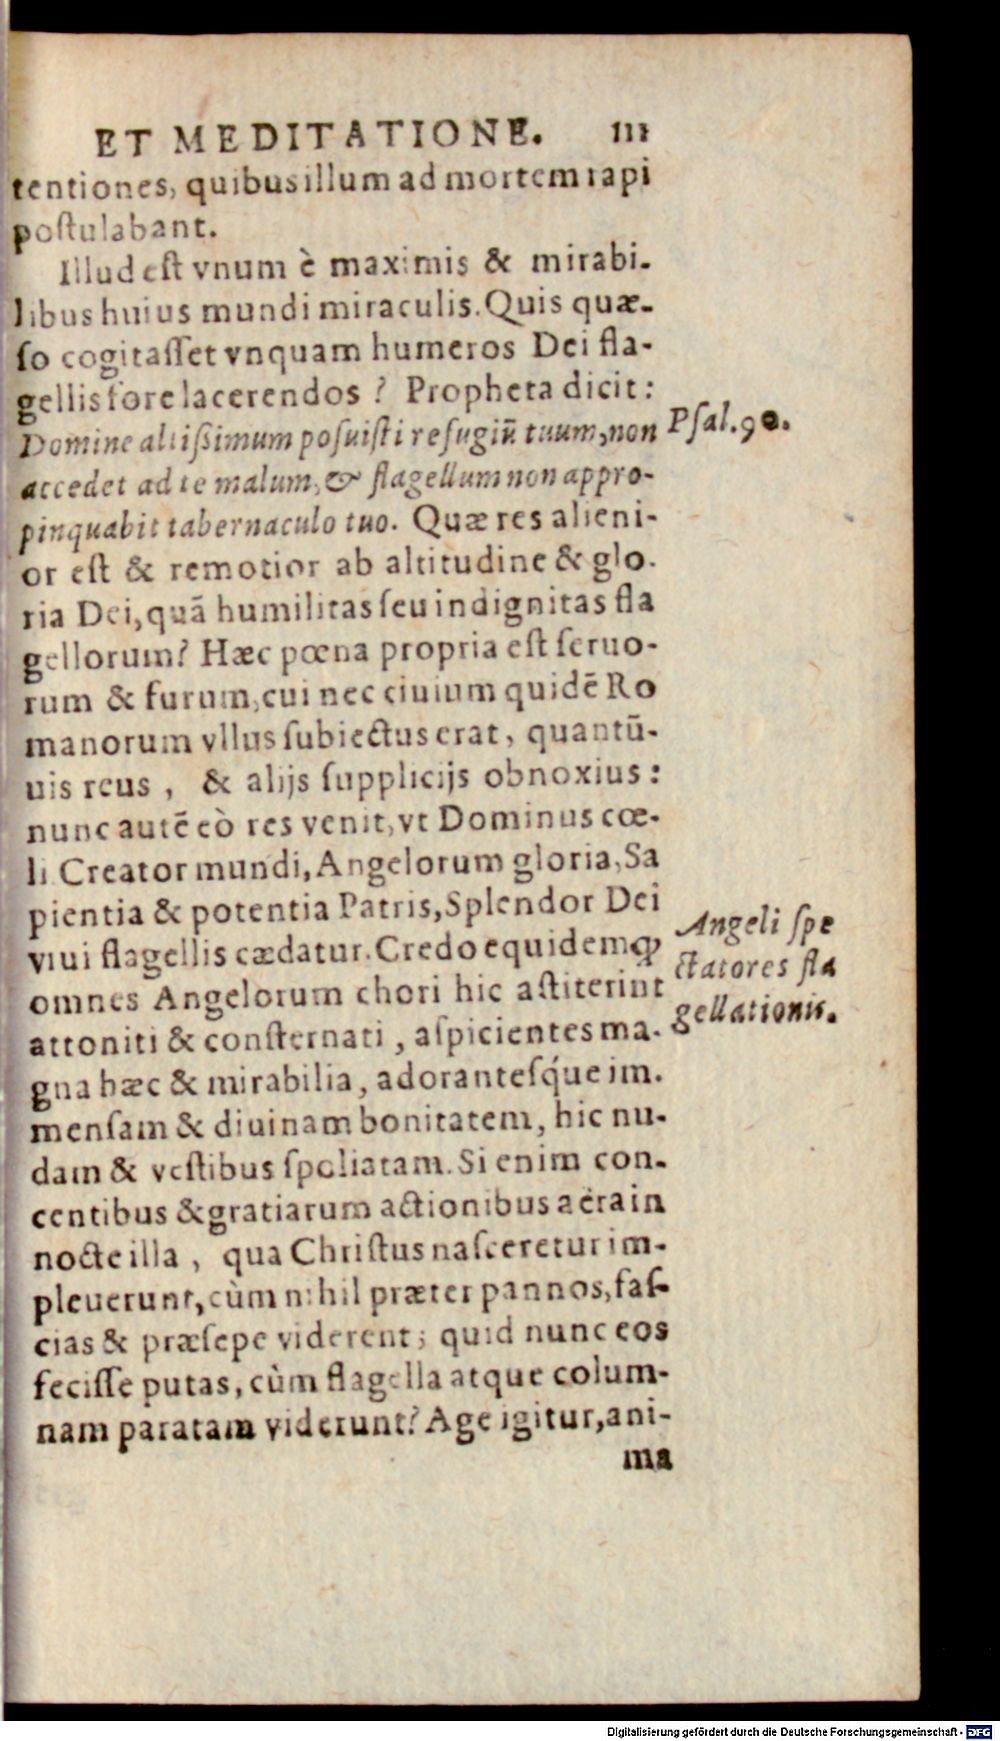 ET MEDITATIONE. 111
tentiones, quibus illum ad mortem rapi
poſtulabant.
Illud eſt vnum è maximis & mirabi-
libus huius mundi miraculis. Quis quæ-
ſo cogitaſſet vnquam humeros Dei fla-
gellis fore lacerendos ? Propheta dicit:
Domine altißimum poſuiſti refugiũ tuum, non
Pſal. 90.
accedet ad te malum, & flagellum non appro-
pinquabit tabernaculo tuo. Quæ res alieni-
or eſt & remotior ab altitudine & glo-
ria Dei, quã humilitas ſeu indignitas fla
gellorum? Hæc pœna propria eſt ſeruo-
rum & furum, cui nec ciuium quidẽ Ro
manorum vllus ſubiectus erat, quantũ-
uis reus , & alijs ſupplicijs obnoxius:
nunc autẽ eò res venit, vt Dominus cœ-
li Creator mundi, Angelorum gloria, Sa
pientia & potentia Patris, Splendor Dei
viui flagellis cædatur. Credo equidem ꝙ
omnes Angelorum chori hic aſtiterint
attoniti & conſternati , aſpicientes ma-
Angeli ſpe
ctatores fla
gellationis.
gna hæc & mirabilia, adorantesq́ue im-
menſam & diuinam bonitatem, hic nu-
dam & veſtibus ſpoliatam. Si enim con-
centibus & gratiarum actionibus aëra in
nocte illa , qua Chriſtus naſceretur im-
pleuerunt, cùm nihil præter pannos, faſ-
cias & præſepe viderent; quid nunc eos
feciſſe putas, cùm flagella atque colum-
nam paratam viderunt? Age igitur, ani-
ma
Digitalisierung gefördert durch die Deutsche Forschungsgemeinschaft - DFG